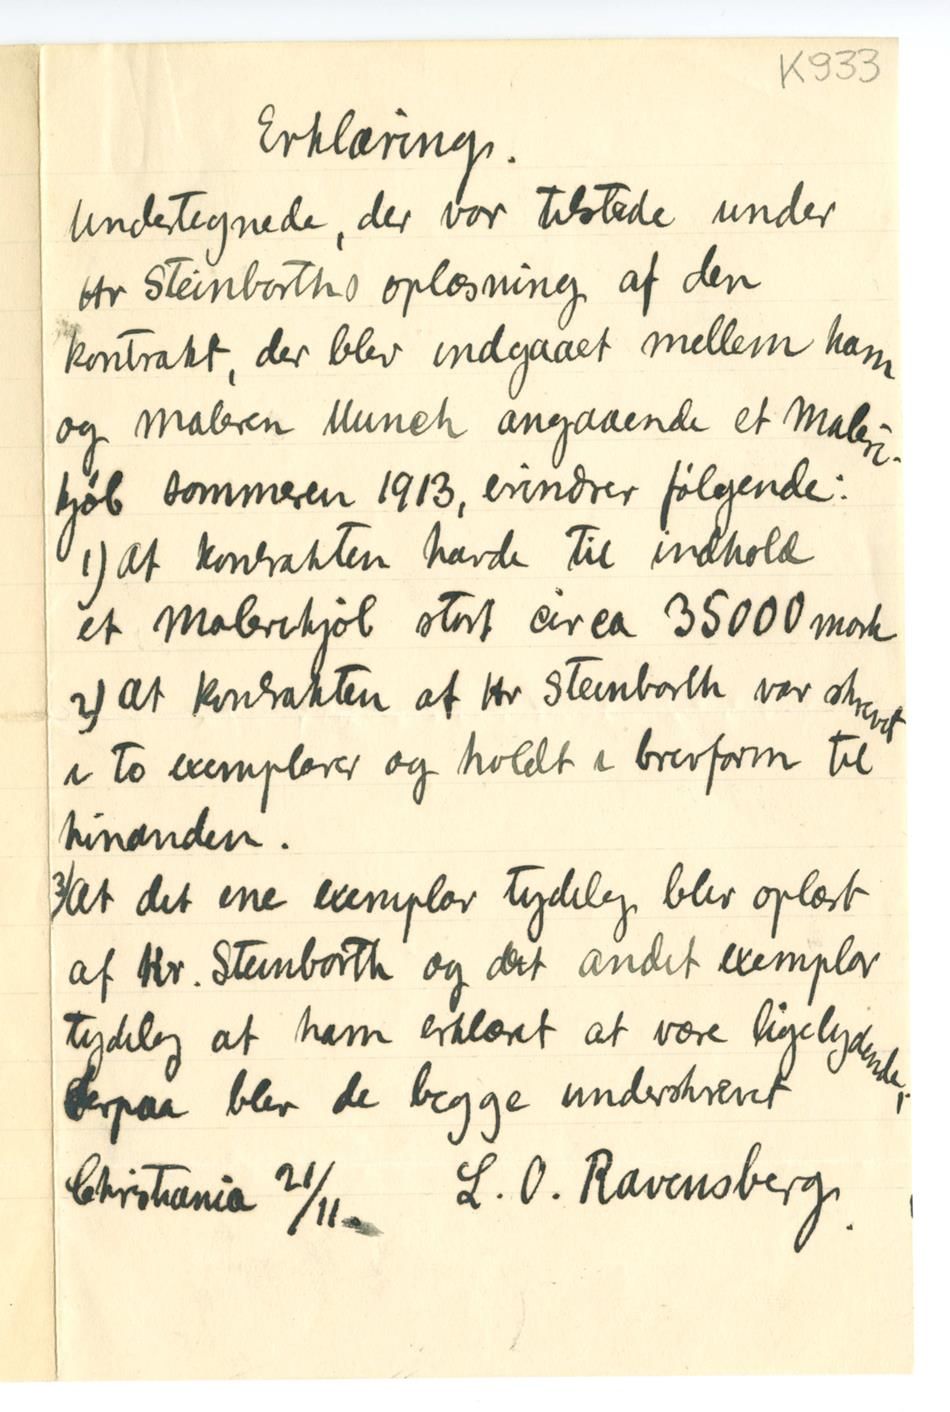 K933
Erklæring.
Undertegnede, der var tilstede under
Hr Steinbarths oplæsning af den
Kontrakt, der blev indgaaet mellem ham
og maleren Munch angaaende et Maleri-
kjøb sommeren 1913, erindrer følgende:
1) At kontrakten havde til indhold
et Malerikjøb stort circa 35000 mark
2) At kontrakten af Hr Steinbarth var skrevet
i to exemplarer og holdt i brevform til
hinanden.
3) At det ene exemplar tydelig blev oplæst
af Hr. Steinbarth og det andet exemplar
tydelig at ham erklæret at være ligelydende;
derpaa blev de begge underskrevet
Christiania 21/11. L. O. Ravensberg.